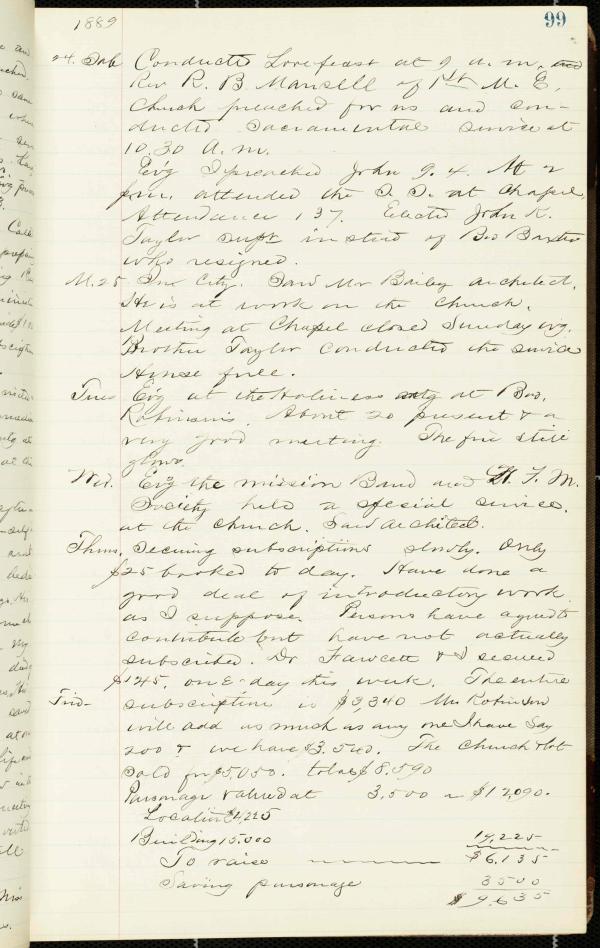 1889
99
24. Sab Conducted Lovefeast at 9 a. m. and
Rev R. B Mansell of 1st M. E.
Church preached for us and con-
ducted Sacramental service at
10.30 A. m.
Ev'g I preached John 9. 4. At 2
p.m. attended the S. S. at Chapel,
Attendance 137. Elected John K.
Taylor Supt instead of Bro Baxter
who resigned.
M. 25 In City. Saw Mr Bailey architect.
He is at work on the Church.
Meeting at Chapel closed Sunday evg.
Brother Taylor conducted the service
House full.
Tues Ev'g at the Holiness mtg at Bro.
Robinsons. About 20 present & a
very good meeting. The fire still
glows.
Wed. Ev'g the mission Band and W. F. M.
Society held a special service.
at the Church. Saw architect.
Thurs. Securing subscriptions slowly. Only
$25 booked to day. Have done a
good deal of introductory work
as I suppose. Persons have agreed to
contribute but have not actually
subscribed. Dr Fawcett & I secured
$145. one day this week. The entire
Frid- subscription is $3,340 Mrs Robinson
will add as much as any one I have Say
200 & we have $3.540. The Church & lot
Sold for $5,050. total $8,590
Parsonage valued at 3,500 = $12,090.
Location $4,225
Building 15.000 19,225
To raise $6.135
Saving parsonage 3500
$9.635